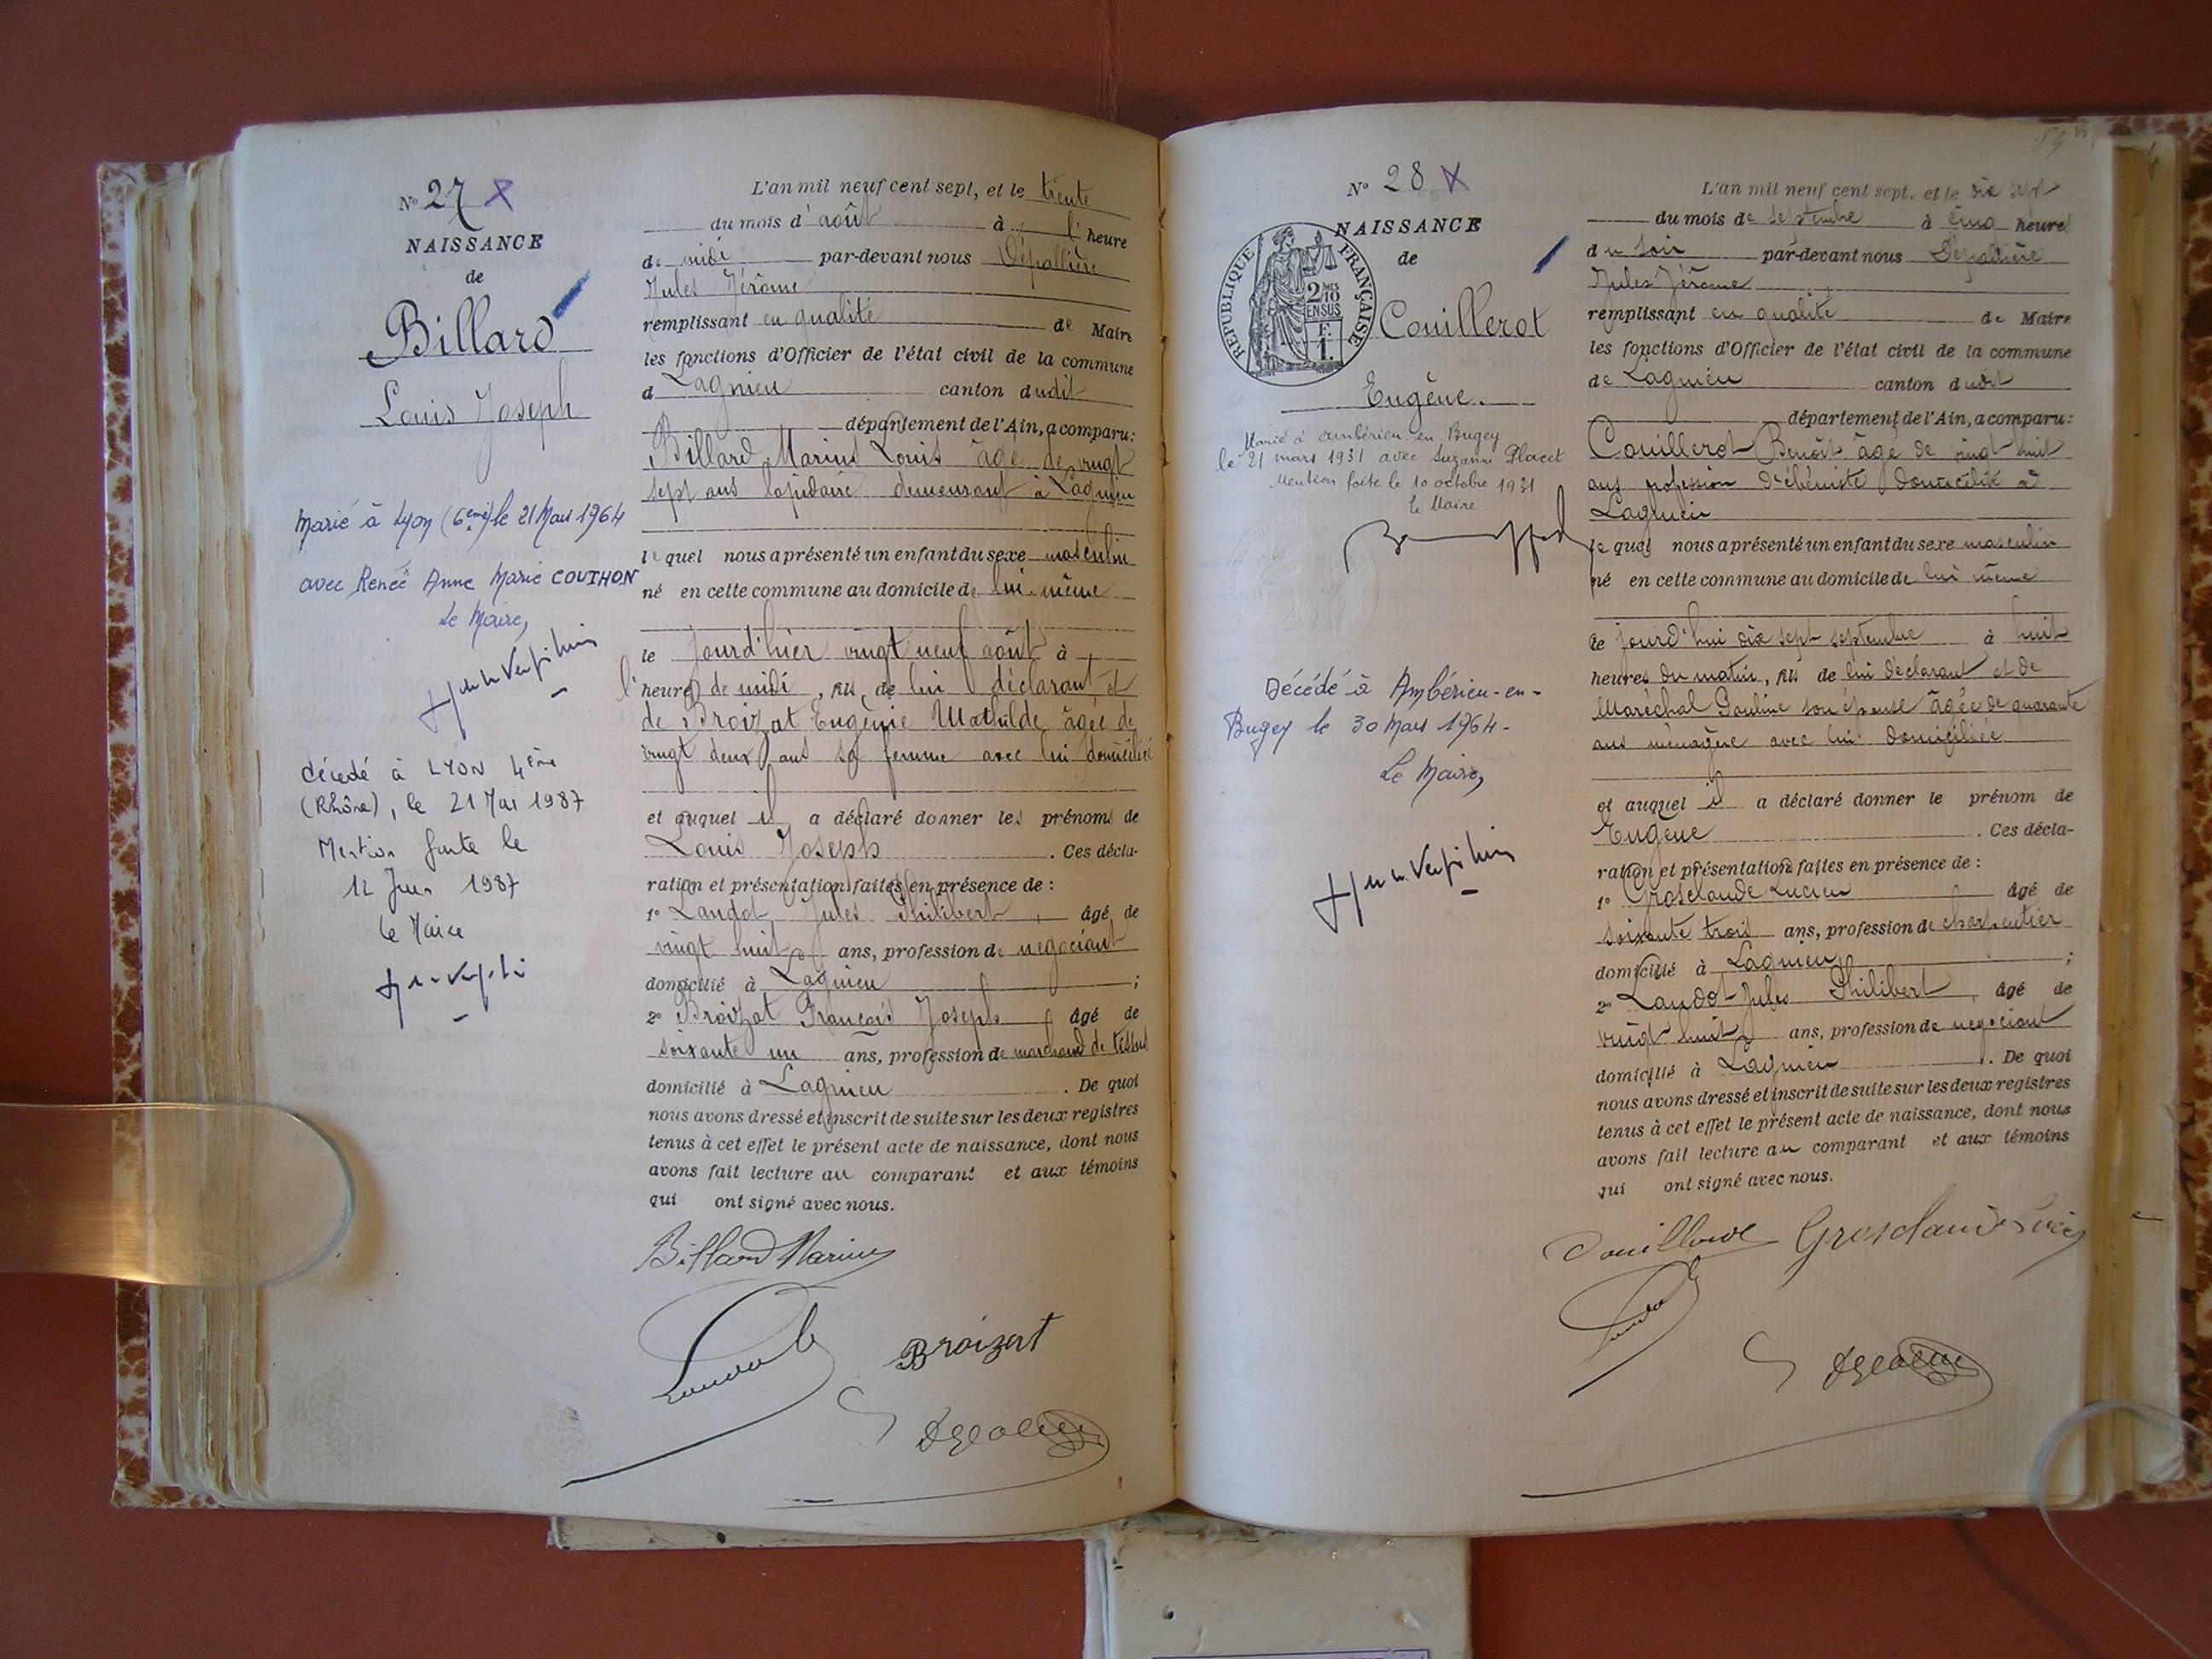 N° 27
NAISSANCE
de
Billard
Louis Joseph
Marié à Lyon (6ème) le 21 Mars 1964
avec Renée Anne Marie COUTHON
Le Maire,
décédé à LYON 4ème
(Rhône), le 21 Mai 1987
Mention faite le
12 Juin 1987
Le Maire
L'an mil neuf cent sept, et le trente
du mois d'août à l' heure
de midi par-devant nous Dépallière
Jules Jérôme
remplissant en qualité de Maire
les fonctions d'Officier de l'état civil de la commune
d Lagnieu canton dudit
département de l'Ain, a comparu:
Billard Marius Louis âgé de vingt
sept ans lapidaire demeurant à Lagnieu
lequel nous a présenté un enfant du sexe masculin
né en cette commune au domicile de lui-même
le jourd'hier vingt neuf août à
l'heure de midi, fils de lui déclarant et
de Broizat Eugénie Mathilde âgée de
vingt deux ans sa femme avec lui domiciliée
et auquel il a déclaré donner les prénoms de
Louis Joseph. Ces décla-
ration et présentation faites en présence de :
1° Landot Jules Philibert, âgé de
vingt huit ans, profession de négociant
domicilié à Lagnieu ;
2° Broizat François Joseph âgé de
soixante un ans, profession de marchand de tissus
domicilié à Lagnieu. De quoi
nous avons dressé et inscrit de suite sur les deux registres
tenus à cet effet le présent acte de naissance, dont nous
avons fait lecture au comparant et aux témoins
qui ont signé avec nous.
Billard Marius
Broizat
N° 28
NAISSANCE
de
RÉPUBLIQUE FRANÇAISE
2/10 EN SUS
F.
1.
Couillerot
Eugène.
Marié à Ambérieu en Bugey
le 21 mars 1931 avec Suzanne Placet
Mention faite le 10 octobre 1931
le Maire
Décédé à Ambérieu-en-
Bugey le 30 Mars 1964.
Le Maire,
L'an mil neuf cent sept, et le dix sept
du mois de septembre à cinq heures
du soir par-devant nous Dépallière
Jules Jérôme
remplissant en qualité de Maire
les fonctions d'Officier de l'état civil de la commune
de Lagnieu canton dudit
département de l'Ain, a comparu:
Couillerot Benoît âgé de vingt huit
ans profession d'ébéniste domicilié à
Lagnieu
lequel nous a présenté un enfant du sexe masculin
né en cette commune au domicile de lui même
le jourd'hui dix sept septembre à huit
heures du matin, fils de lui déclarant et de
Maréchal Pauline son épouse âgée de quarante
ans ménagère avec lui domiciliée
et auquel il a déclaré donner le prénom de
Eugène. Ces décla-
ration et présentation faites en présence de :
1° Grosclaude Lucien âgé de
soixante trois ans, profession de charpentier
domicilié à Lagnieu ;
2° Landot Jules Philibert, âgé de
vingt huit ans, profession de négociant
domicilié à Lagnieu. De quoi
nous avons dressé et inscrit de suite sur les deux registres
tenus à cet effet le présent acte de naissance, dont nous
avons fait lecture au comparant et aux témoins
qui ont signé avec nous.